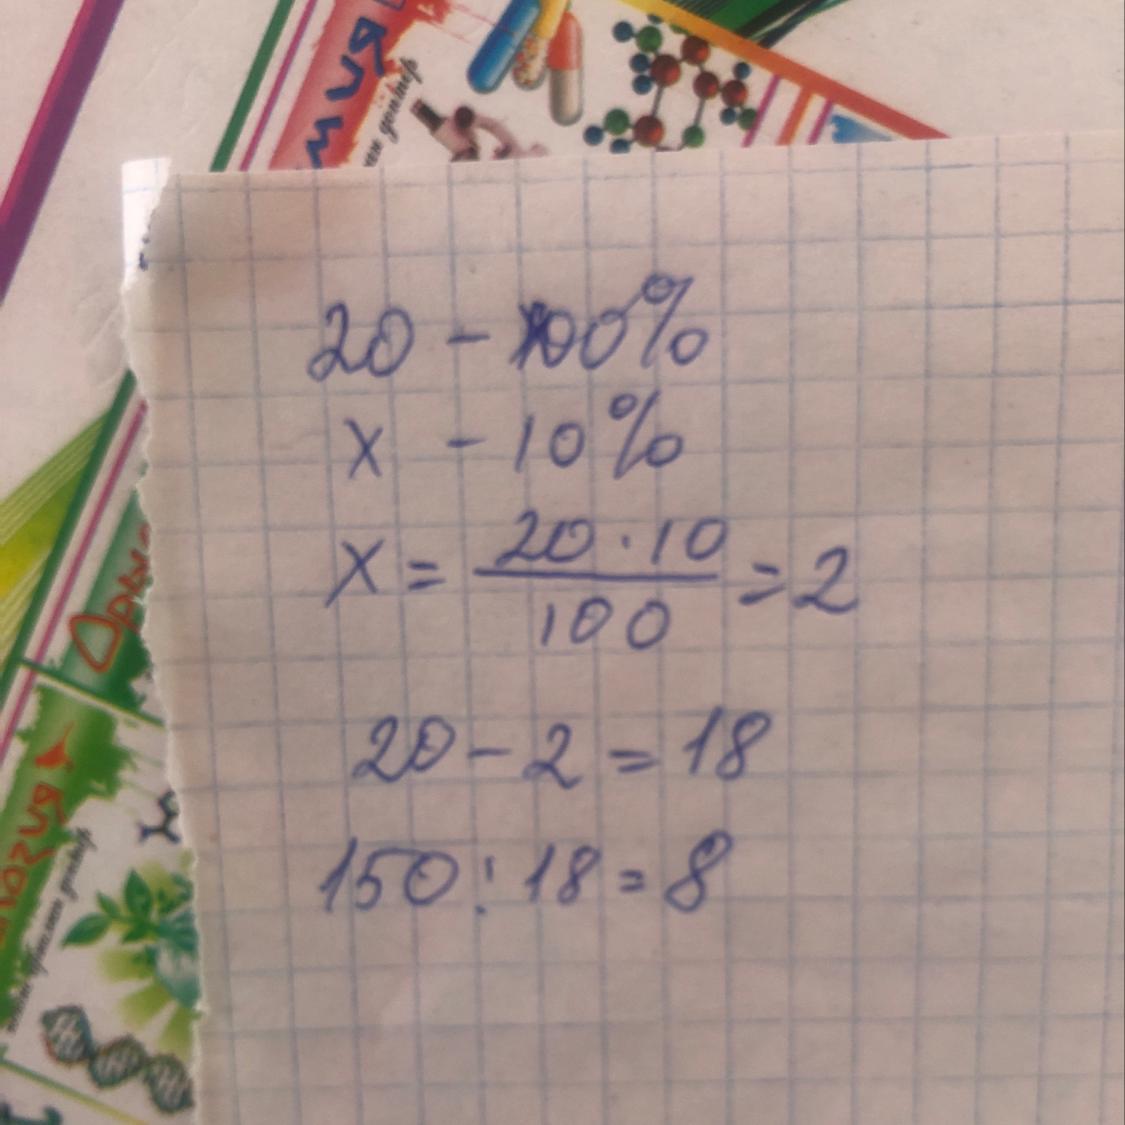 мия
20 - 100%
x - 10%
x = 20 · 10 / 100 = 2
20 - 2 = 18
150 : 18 = 8